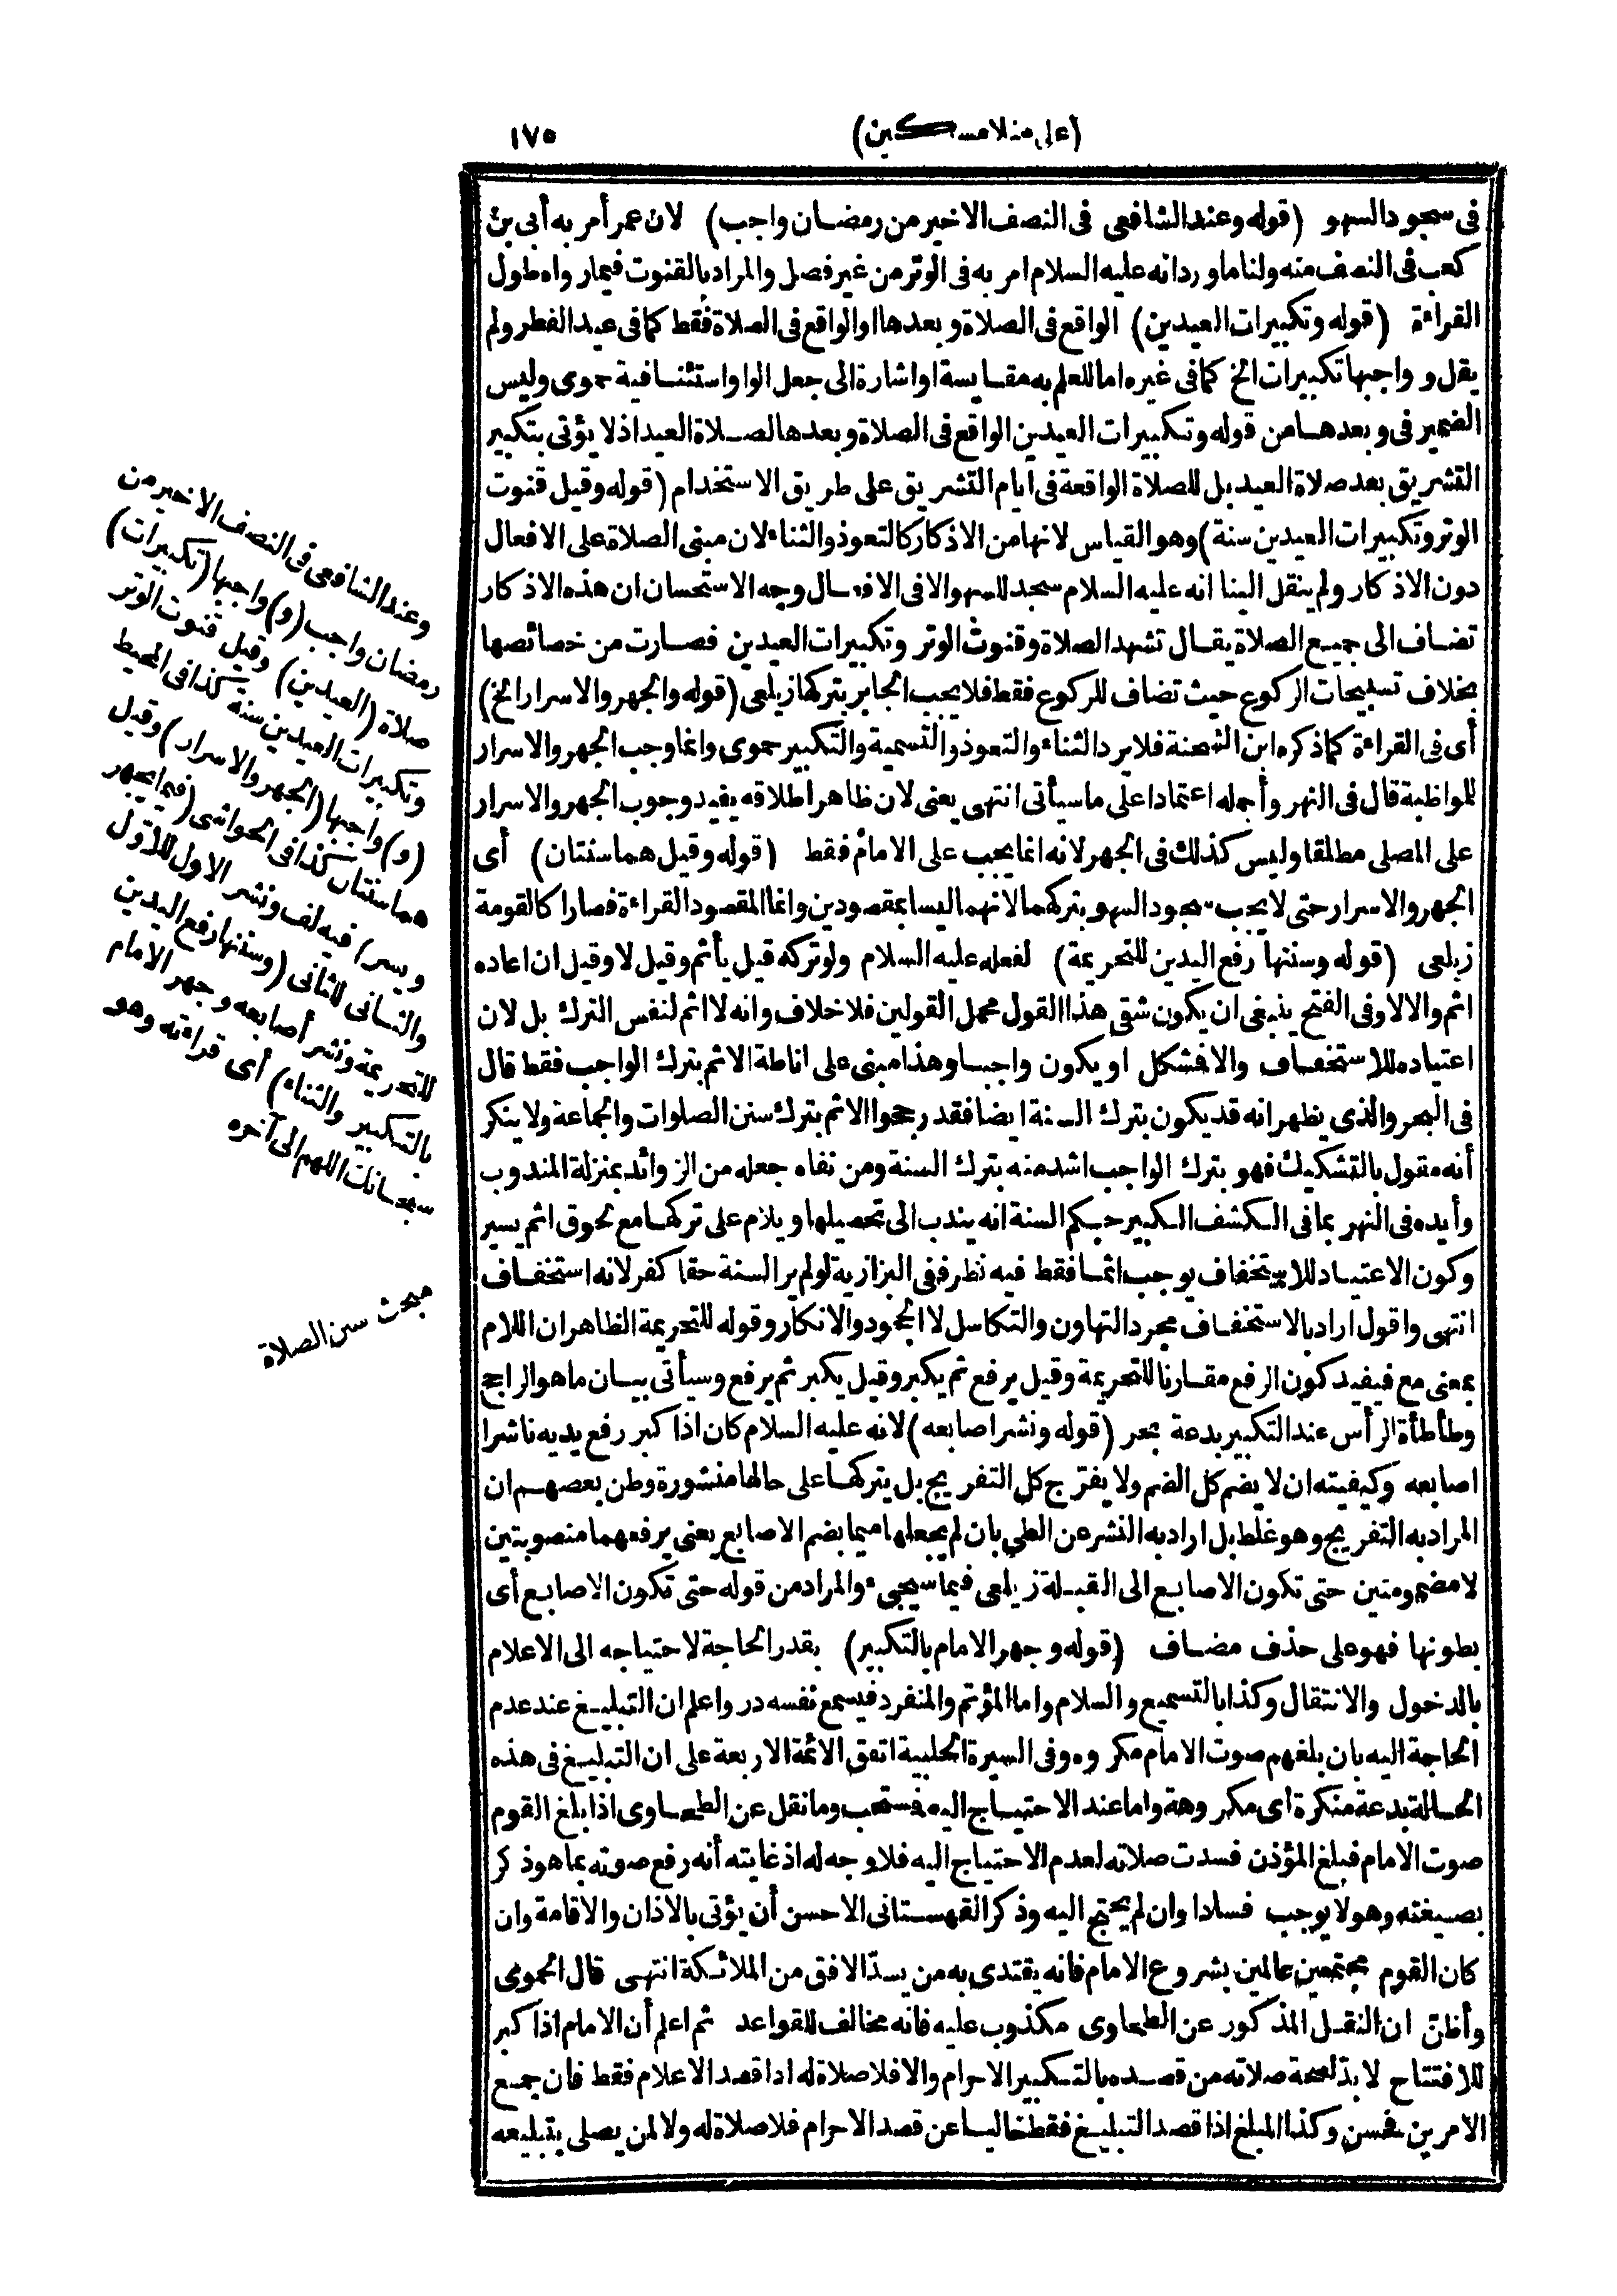 (على منلا مسكين) ١٧٥
فى سجود السهو (قوله وعند الشافعى فى النصف الاخير من رمضان واجب) لان عمر أمر به أبى بن
كعب فى النصف منه ولنا ما ورد انه عليه السلام امر به فى الوتر من غير فصل والمراد بالقنوت فيما رواه طول
القراءة (قوله وتكبيرات العيدين) الواقع فى الصلاة وبعدها او الواقع فى الصلاة فقط كما فى عيد الفطر ولم
يقل وواجبها تكبيرات الخ كما فى غيره اما للعلم به مقايسة او اشارة الى جعل الواو استئنافية حموى وليس
الضمير فى وبعدها من قوله وتكبيرات العيدين الواقع فى الصلاة وبعدها لصلاة العيد اذ لا يؤتى بتكبير
التشريق بعد صلاة العيد بل للصلاة الواقعة فى ايام التشريق على طريق الاستخدام (قوله وقيل قنوت
الوتر وتكبيرات العيدين سنة) وهو القياس لانها من الاذكار كالتعوذ والثناء لان مبنى الصلاة على الافعال
دون الاذكار ولم ينقل الينا انه عليه السلام سجد للسهو الا فى الافعال وجه الاستحسان ان هذه الاذكار
تضاف الى جميع الصلاة يقال تشهد الصلاة وقنوت الوتر وتكبيرات العيدين فصارت من خصائصها
بخلاف تسبيحات الركوع حيث تضاف للركوع فقط فلا يجب الجابر بتركها زيلعى (قوله والجهر والاسرار الخ)
أى فى القراءة كما ذكره ابن الشحنة فلا يرد الثناء والتعوذ والتسمية والتكبير حموى وانما وجب الجهر والاسرار
للمواظبة قال فى النهر وأجمله اعتمادا على ما سيأتى انتهى يعنى لان ظاهر اطلاقه يفيد وجوب الجهر والاسرار
على المصلى مطلقا وليس كذلك فى الجهر لانه انما يجب على الامام فقط (قوله وقيل هما سنتان) أى
الجهر والاسرار حتى لا يجب سجود السهو بتركهما لانهما ليسا بمقصودين وانما المقصود القراءة فصارا كالقومة
زيلعى (قوله وسننها رفع اليدين للتحريمة) لفعله عليه السلام ولو تركه قيل يأثم وقيل لا وقيل ان اعاده
اثم والا لا وفى الفتح ينبغى ان يكون شقى هذا القول محمل القولين فلا خلاف وانه لا اثم لنفس الترك بل لان
اعتياده للاستخفاف والا فشكل او يكون واجبا وهذا مبنى على اناطة الاثم بترك الواجب فقط قال
فى البحر والذى يظهر انه قد يكون بترك السنة ايضا فقد رجحوا الاثم بترك سنن الصلوات والجماعة ولا ينكر
أنه مقول بالتشكيك فهو بترك الواجب اشد منه بترك السنة ومن نفاه جعله من الزوائد بمنزلة المندوب
وأيده فى النهر بما فى الكشف الكبير حكم السنة انه يندب الى تحصيلها ويلام على تركها مع لحوق اثم يسير
وكون الاعتياد للاستخفاف يوجب اثما فقط فيه نظر ففى البزازية لو لم ير السنة حقا كفر لانه استخفاف
انتهى واقول اراد بالاستخفاف مجرد التهاون والتكاسل لا الجحود والانكار وقوله للتحريمة الظاهر ان اللام
بمعنى مع فيفيد كون الرفع مقارنا للتحريمة وقيل يرفع ثم يكبر وقيل يكبر ثم يرفع وسيأتى بيان ما هو الراجح
وطأطأة الرأس عند التكبير بدعة بحر (قوله ونشر اصابعه) لانه عليه السلام كان اذا كبر رفع يديه ناشرا
اصابعه وكيفيته ان لا يضم كل الضم ولا يفترج كل التفريج بل يتركها على حالها منشورة وظن بعضهم ان
المراد به التفريج وهو غلط بل اراد به النشر عن الطى بان لم يجعلها ميما بضم الاصابع يعنى يرفعهما منصوبتين
لا مضمومتين حتى تكون الاصابع الى القبلة زيلعى فيما سيجىء والمراد من قوله حتى تكون الاصابع أى
بطونها فهو على حذف مضاف (قوله وجهر الامام بالتكبير) بقدر الحاجة لاحتياجه الى الاعلام
بالدخول والانتقال وكذا بالتسميع والسلام واما المؤتم والمنفرد فيسمع نفسه در واعلم ان التبليغ عند عدم
الحاجة اليه بان بلغهم صوت الامام مكروه وفى السيرة الحلبية اتفق الائمة الاربعة على ان التبليغ فى هذه
الحالة بدعة منكرة أى مكروهة واما عند الاحتياج اليه فستحب وما نقل عن الطحاوى اذا بلغ القوم
صوت الامام فبلغ المؤذن فسدت صلاته لعدم الاحتياج اليه فلا وجه له اذ غايته أنه رفع صوته بما هو ذكر
بصيغته وهو لا يوجب فسادا وان لم يحتج اليه وذكر القهستانى الاحسن أن يؤتى بالاذان والاقامة وان
كان القوم مجتمعين عالمين بشروع الامام فانه يقتدى به من يسدّ الافق من الملائكة انتهى قال الحموى
وأظنّ ان النقل المذكور عن الطحاوى مكذوب عليه فانه مخالف للقواعد ثم اعلم أن الامام اذا كبر
للافتتاح لا بدّ لصحة صلاته من قصده بالتكبير الاحرام والا فلا صلاة له اذا قصد الاعلام فقط فان جمع
الامرين فحسن وكذا المبلغ اذا قصد التبليغ فقط خاليا عن قصد الاحرام فلا صلاة له ولا لمن يصلى بتبليغه
وعند الشافعى فى النصف الاخير من
رمضان واجب (و) واجبها (تكبيرات)
صلاة (العيدين) وقيل قنوت الوتر
وتكبيرات العيدين سنة كذا فى المحيط
(و) واجبها (الجهر والاسرار) وقيل
هما سنتان كذا فى الحواشى (فيما يجهر
ويسر) فيه لف ونشر الاول للاول
والثانى للثانى (وسننها رفع اليدين
للتحريمة ونشر أصابعه وجهر الامام
بالتكبير والثناء) أى قراءته وهو
سبحانك اللهم الى آخره
مبحث سنن الصلاة